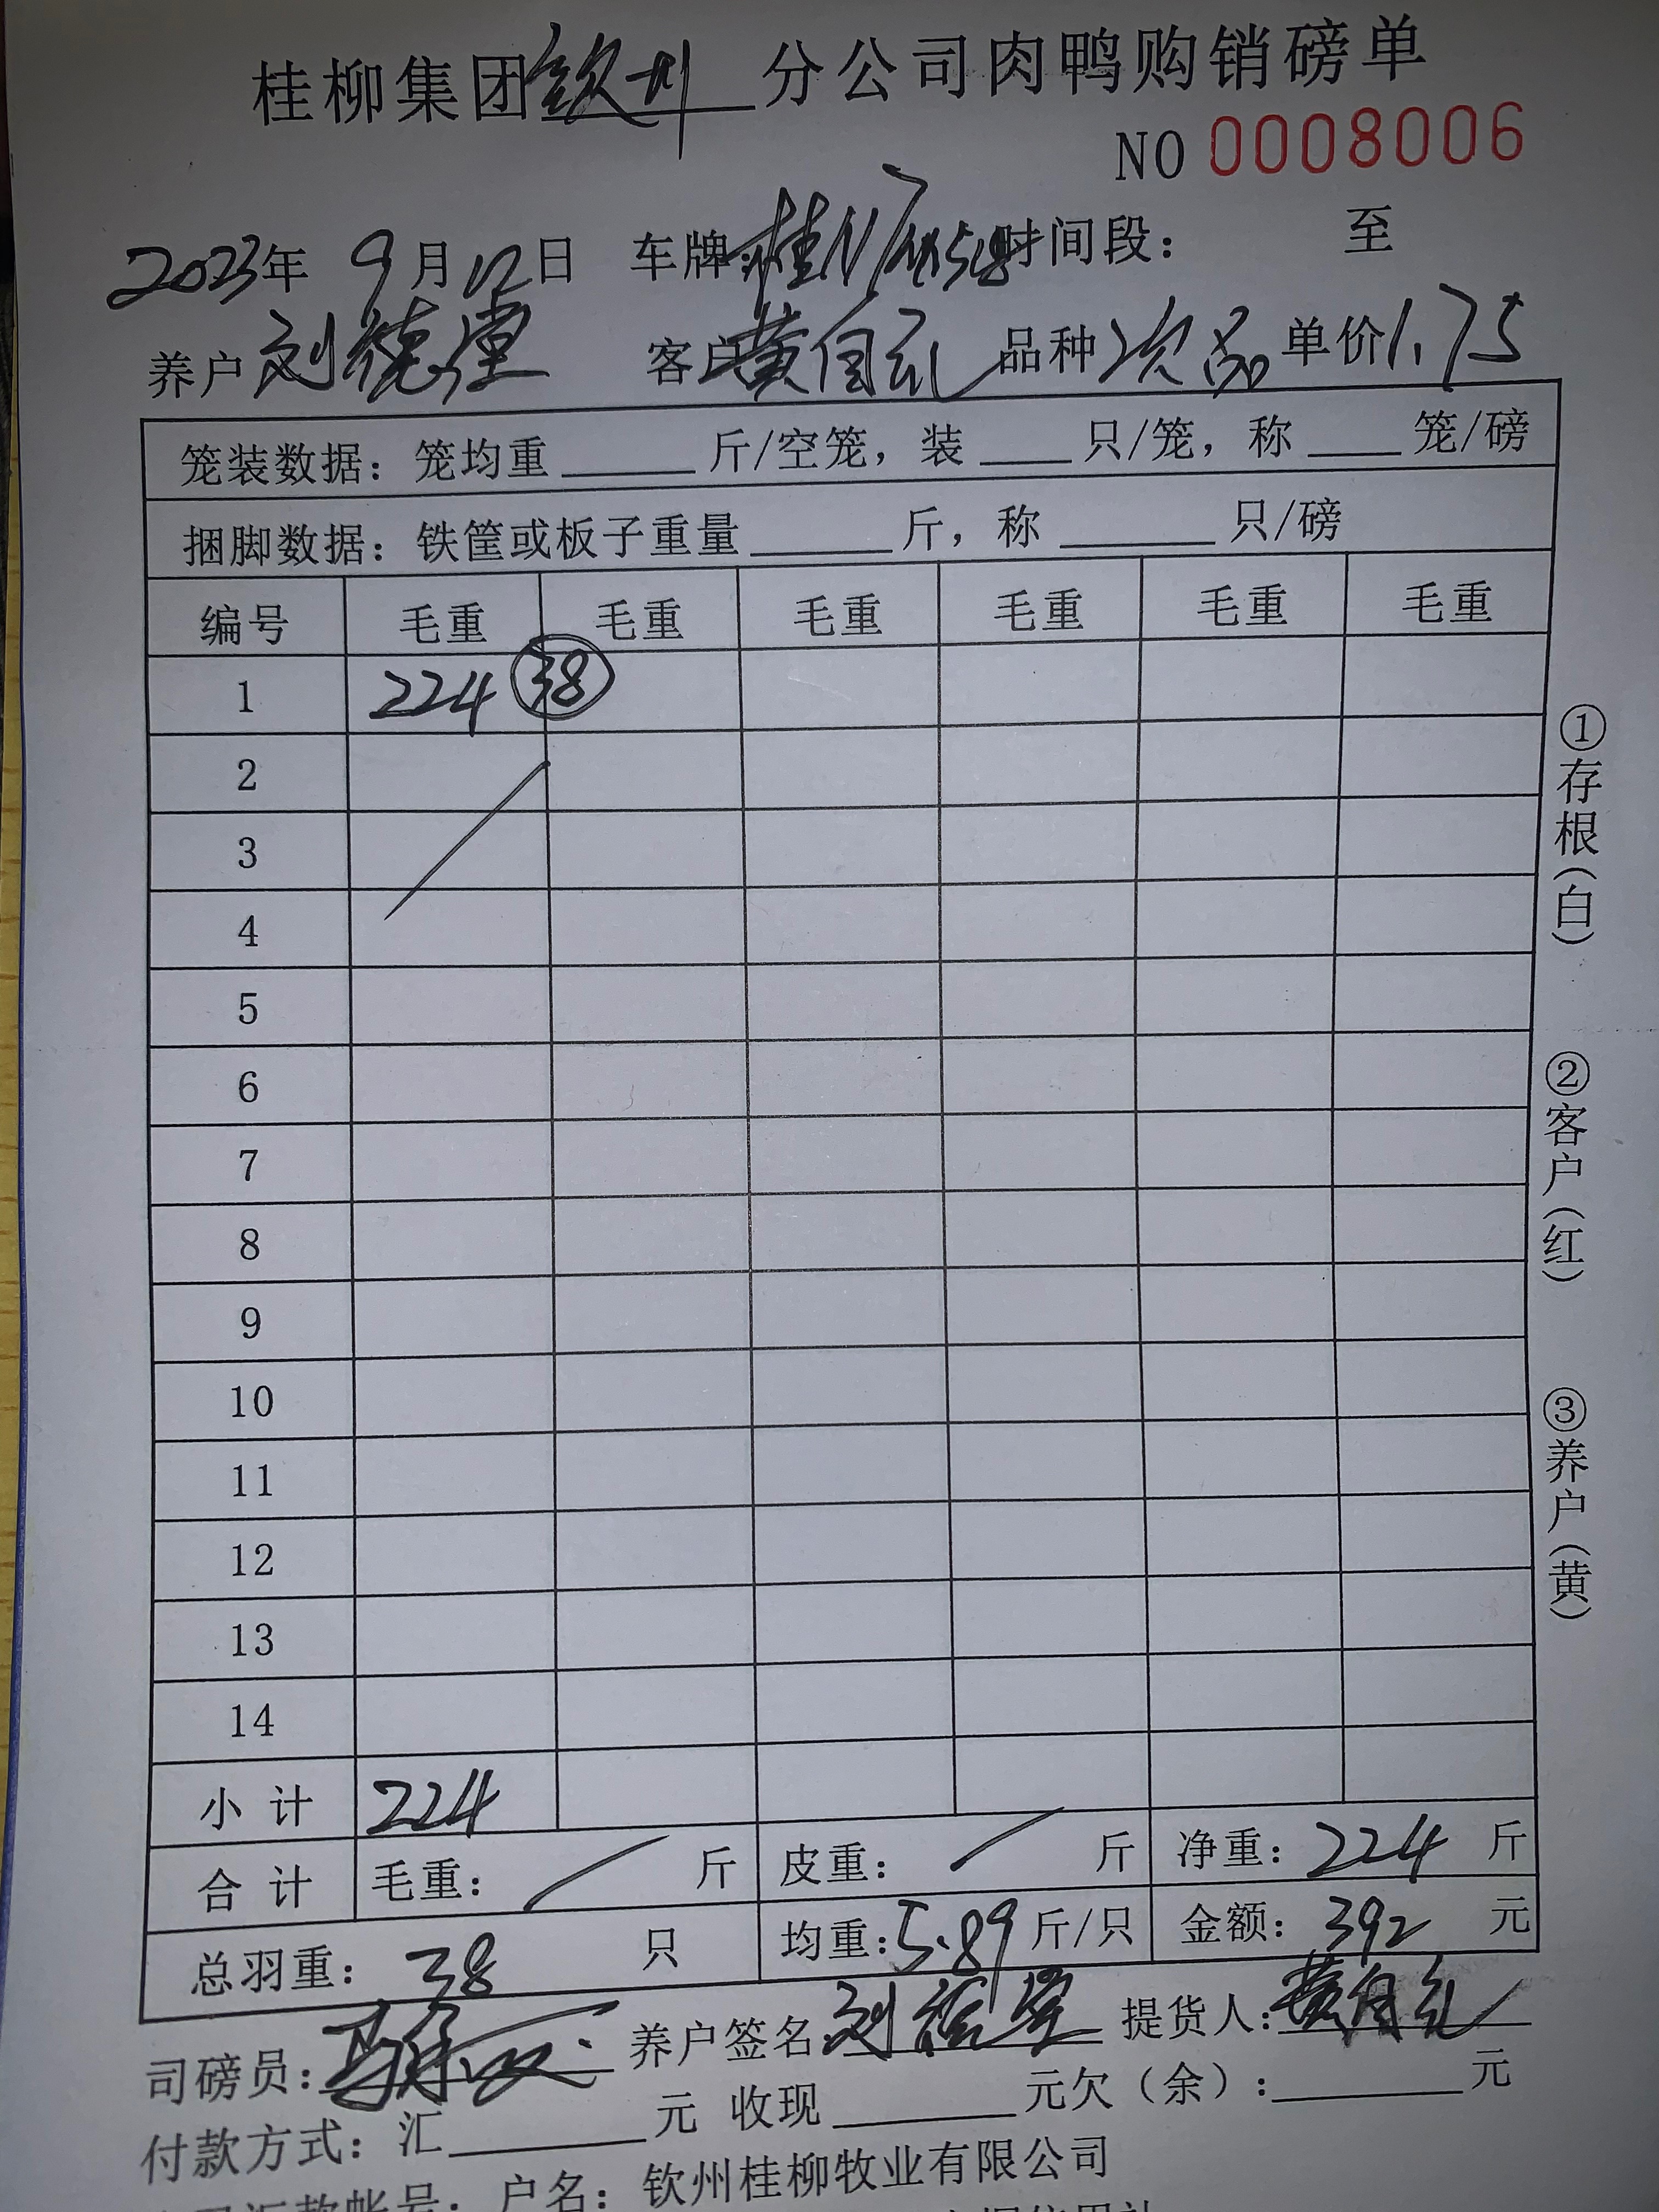 桂柳集团钦州分公司肉鸭购销磅单
NO 0008006
2023年 9月12日 车牌: 时间段： 至
养户 刘德堂 客户 黄自礼 品种 次品 单价 1.75
笼装数据：笼均重____斤/空笼，装____只/笼，称____笼/磅
捆脚数据：铁筐或板子重量____斤，称____只/磅
编号 毛重 毛重 毛重 毛重 毛重 毛重
1 224 38
2
3
4
5
6
7
8
9
10
11
12
13
14
小 计 224
合 计 毛重： / 斤 皮重： / 斤 净重：224 斤
总羽重：38 只 均重：5.89 斤/只 金额：392 元
司磅员： 养户签名:刘德堂 提货人:黄自礼
付款方式：汇____元 收现____元欠（余）:____元
户名：钦州桂柳牧业有限公司
①存根（白）
②客户（红）
③养户（黄）